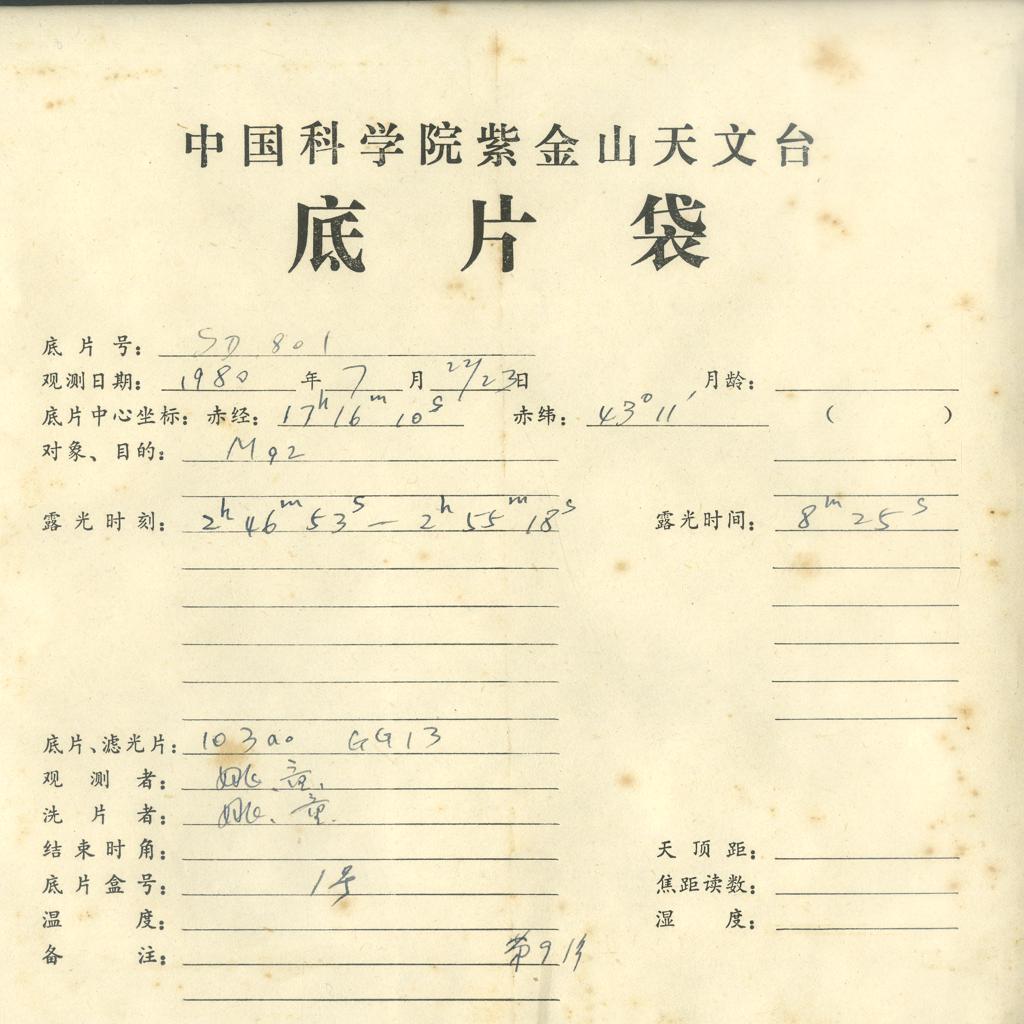 中国科学院紫金山天文台
底片袋
底片号： SD 801
观测日期： 1980 年 7 月 22/23日 月龄：
底片中心坐标：赤经： 17h 16m 10s 赤纬： 43° 11′ （ ）
对象、目的： M92
露光时刻： 2h 46m 53s — 2h 55m 18s 露光时间： 8m 25s
底片、滤光片： 103aO GG13
观测者： 姚、童.
洗片者： 姚、童.
结束时角： 天顶距：
底片盒号： 1号 焦距读数：
温度： 湿度：
备注： 第9